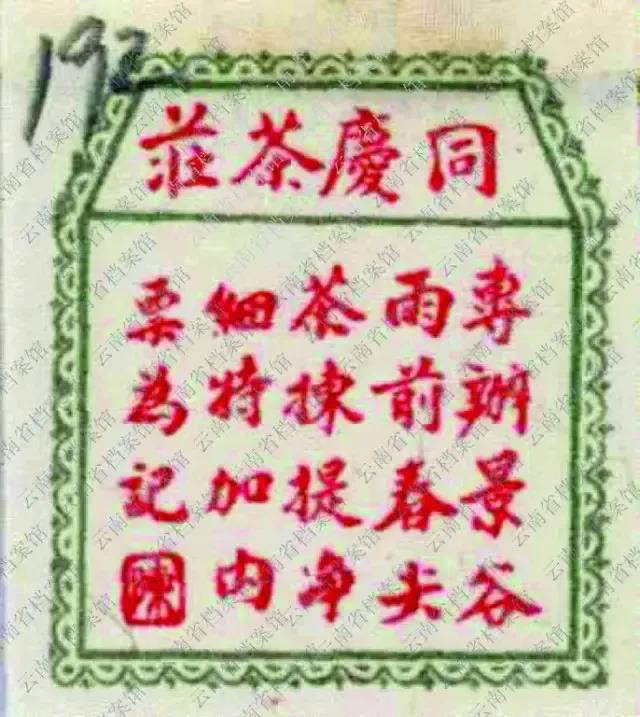 192
同慶茶莊
專辦景谷
雨前春尖
茶揀提净
細特加内
票為記
陳
云南省档案馆